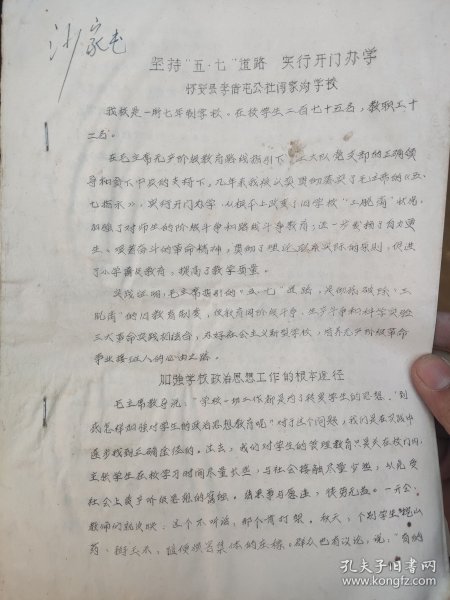 坚持“五·七”道路 实行开门办学
怀安县李信屯公社阎家沟学校
我校是一所七年制学校。在校学生二百七十五名，教职工十
二名。
在毛主席无产阶级教育路线指引下，大队党支部的正确领
导和贫下中农的支持下，几年来我校认真贯彻落实了毛主席的《五·
七指示》，实行开门办学，从根本上改变了旧学校“三脱离”状况，
加强了对师生的阶级斗争和路线斗争教育；进一步发扬了自力更
生、艰苦奋斗的革命精神，贯彻了理论联系实际的原则，促进
了小学普及教育，提高了教学质量。
实践证明，毛主席指引的“五·七”道路，是彻底破除“三
脱离”的旧教育制度，使教育同阶级斗争、生产斗争和科学实验
三大革命实践相结合，办好社会主义新型学校，培养无产阶级革命
事业接班人的必由之路。
加强学校政治思想工作的根本途径
毛主席教导说：“学校一切工作都是为了转变学生的思想。”到
我怎样加强对学生的政治思想教育呢？对于这个问题，我们是在实践中
逐步找到正确途径的。过去，我们对学生的管理教育只是关在校门内，
主张学生在校学习时间尽量长些，与社会接触尽量少些，以免受
社会上资产阶级思想的腐蚀。结果事与愿违，收效无益。一开会，
教师们就反映：这个不听话，那个有打架。秋天，个别学生
药、掰玉米，
集体的庄稼。群众也有议论，说：“有的
孔夫子旧书网